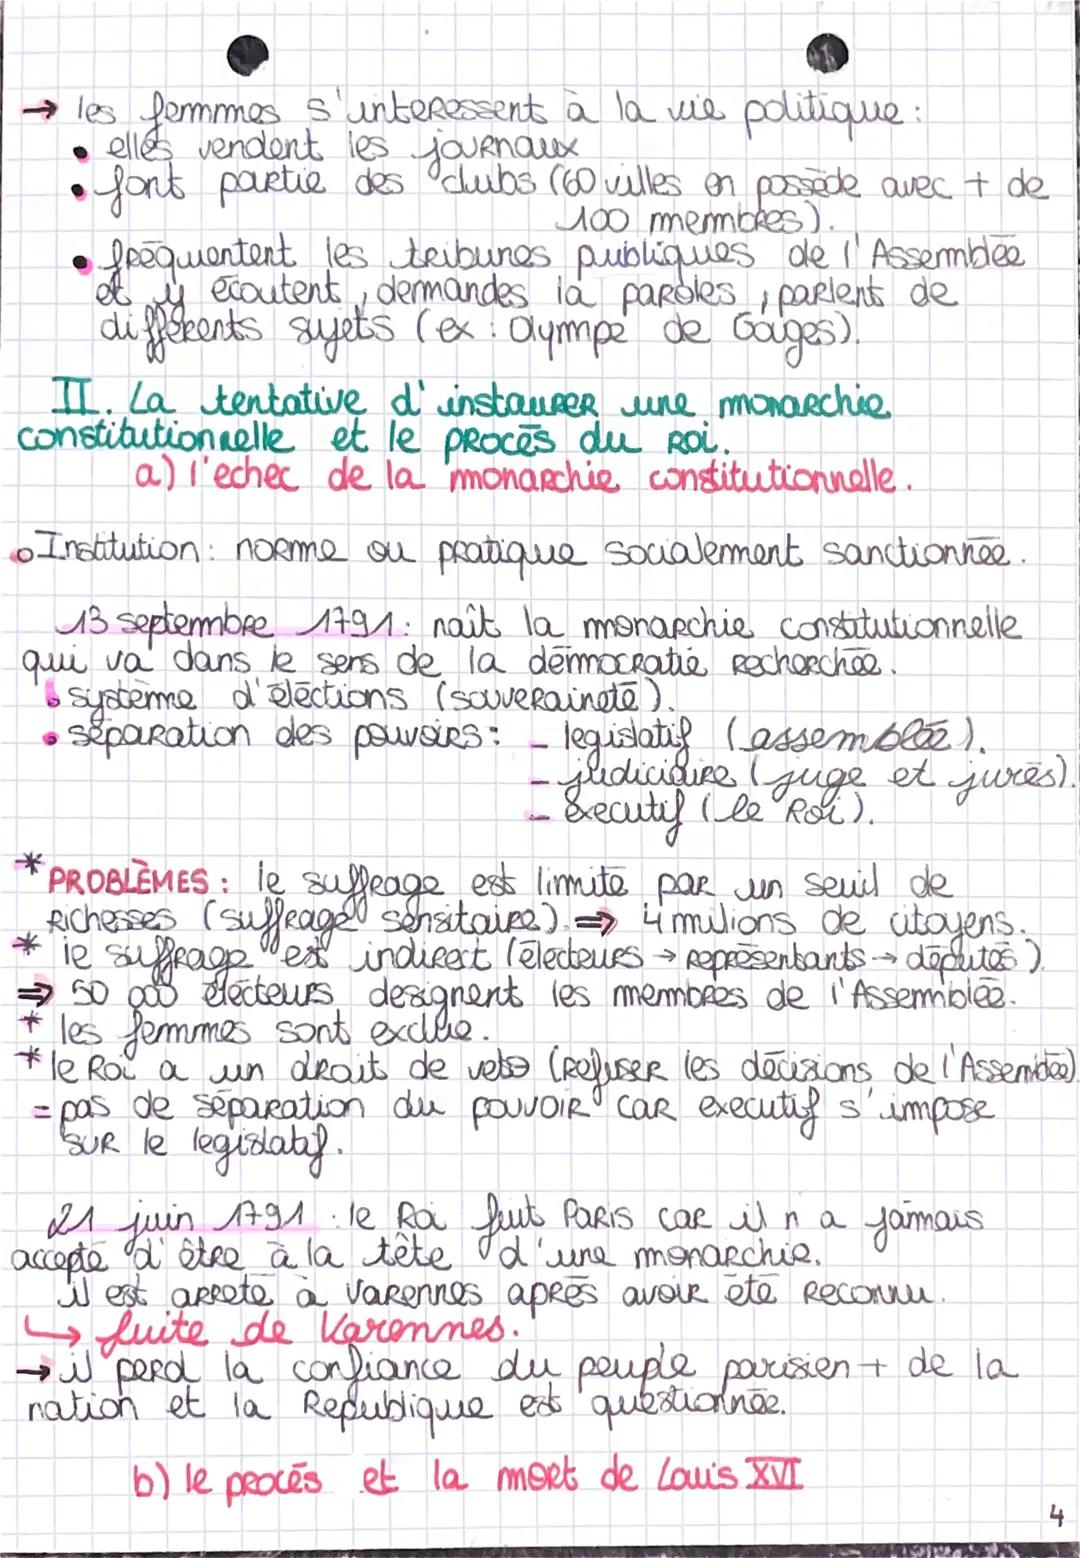 → les femmes s'interessent à la vie politique :
• elles vendent les journaux
• font partie des clubs (60 villes en possède avec + de
100 membres).
• fréquentent les tribunes publiques de l'Assemblée
et y écoutent, demandes la paroles, parlent de
différents sujets (ex : Olympe de Gouges).
II. La tentative d'instaurer une monarchie
constitutionnelle et le procès du Roi.
a) l'echec de la monarchie constitutionnelle.
• Institution : norme ou pratique socialement sanctionnée.
13 septembre 1791 : naît la monarchie constitutionnelle
qui va dans le sens de la démocratie recherchée.
• système d'éléctions (souveraineté).
• séparation des pouvoirs : - legislatif (assemblée).
- judiciaire (juge et jurés).
- éxecutif (le Roi).
* PROBLÈMES : le suffrage est limité par un seuil de
richesses (suffrage sensitaire). ⇒ 4 milions de citoyens.
* le suffrage est indirect (électeurs → représentants → députés).
⇒ 50 000 électeurs designent les membres de l'Assemblée.
* les femmes sont exclue.
* le Roi a un droit de veto (refuser les décisions de l'Assemblée)
= pas de séparation du pouvoir car executif s'impose
sur le legislatif.
21 juin 1791 : le Roi fuit Paris car il n a jamais
accepté d'être à la tête d'une monarchie.
il est arreté à Varennes après avoir été reconnu.
↳ fuite de Varennes.
→ il perd la confiance du peuple parisien + de la
nation et la Republique est questionnée.
b) le procés et la mort de Louis XVI
4